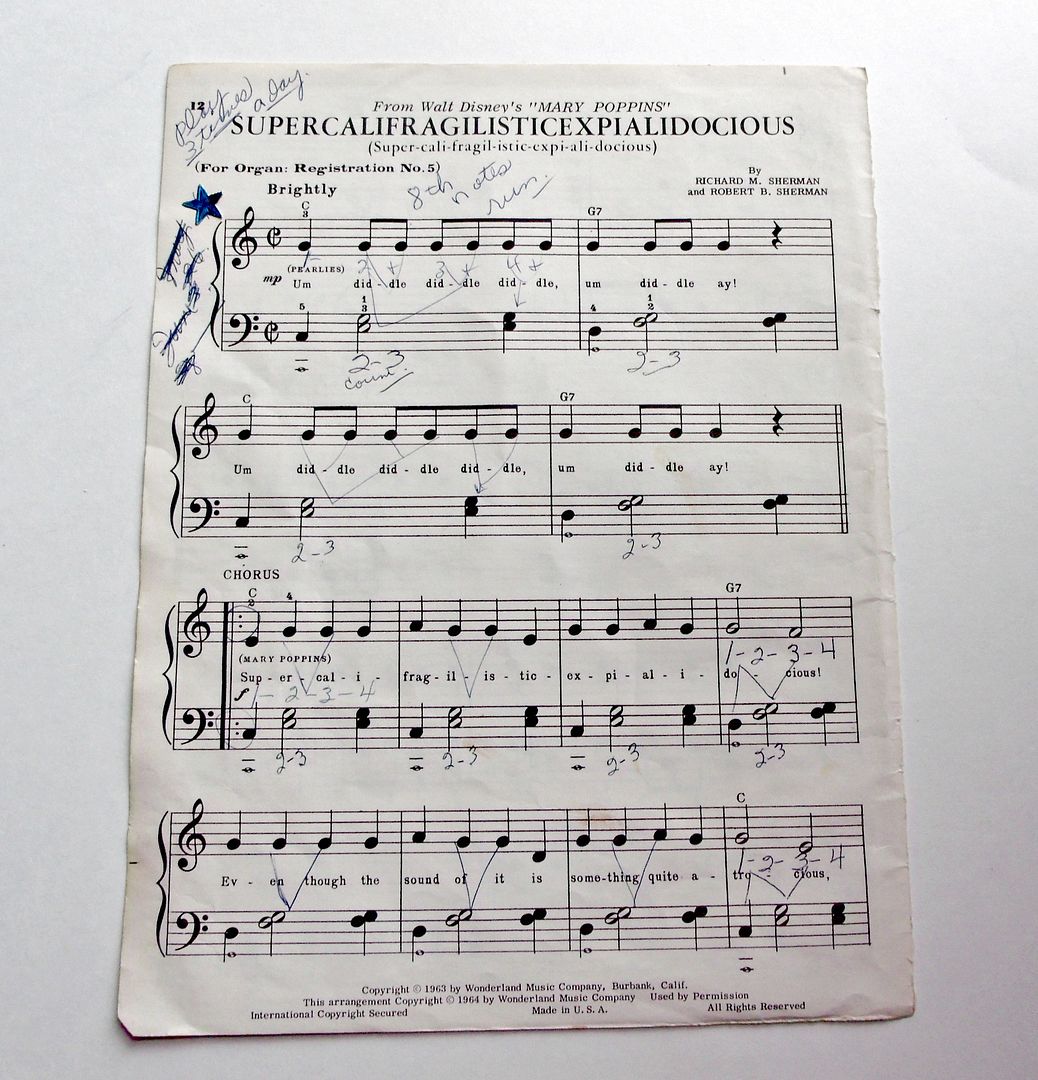 Play
3 times
a day.
12
From Walt Disney's "MARY POPPINS"
SUPERCALIFRAGILISTICEXPIALIDOCIOUS
(Super-cali-fragil-istic-expi-ali-docious)
(For Organ: Registration No. 5)
By
RICHARD M. SHERMAN
and ROBERT B. SHERMAN
Brightly
8th notes
run.
C
3
G7
1 2 + 3 + 4 +
mp
(PEARLIES)
Um did - dle did - dle did - dle, um did - dle ay!
5 1 3 4 1 2
2-3 2-3
count.
C G7
Um did - dle did - dle did - dle, um did - dle ay!
2-3 2-3
CHORUS
C
2 4
G7
(MARY POPPINS)
1-2-3-4
Sup - er - cal - i - frag - il - is - tic - ex - pi - al - i - do - cious!
f 1-2-3-4
2-3 2-3 2-3 2-3
C
1-2-3-4
Ev - en though the sound of it is some-thing quite a - tro - cious,
Copyright © 1963 by Wonderland Music Company, Burbank, Calif.
This arrangement Copyright © 1964 by Wonderland Music Company Used by Permission
International Copyright Secured Made in U. S. A. All Rights Reserved